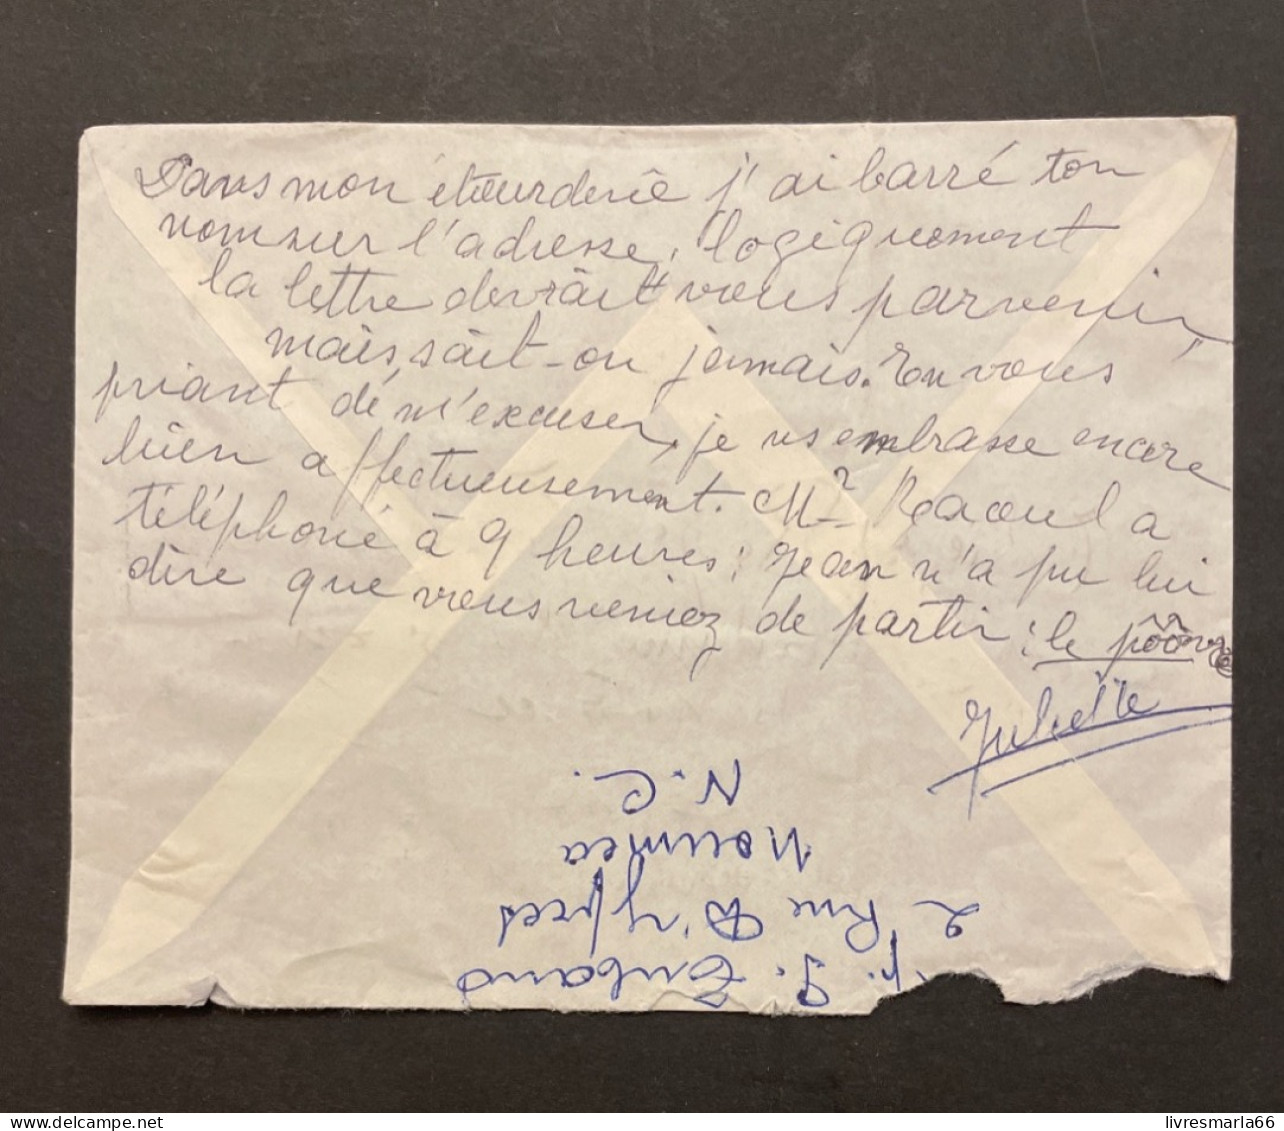 Dans mon étourderie j'ai barré ton
nom sur l'adresse, logiquement
la lettre devrait vous parvenir,
mais sait-on jamais. En vous
priant de m'excuser, je vs embrasse encore
bien affectueusement. Mr Raoul a
téléphoné à 9 heures : Jean n'a pu lui
dire que vous veniez de partir : le pôôvre
Juliette
J. Touband
2 Rue D'Ypres
Nouméa
N.C.
livresmarla66